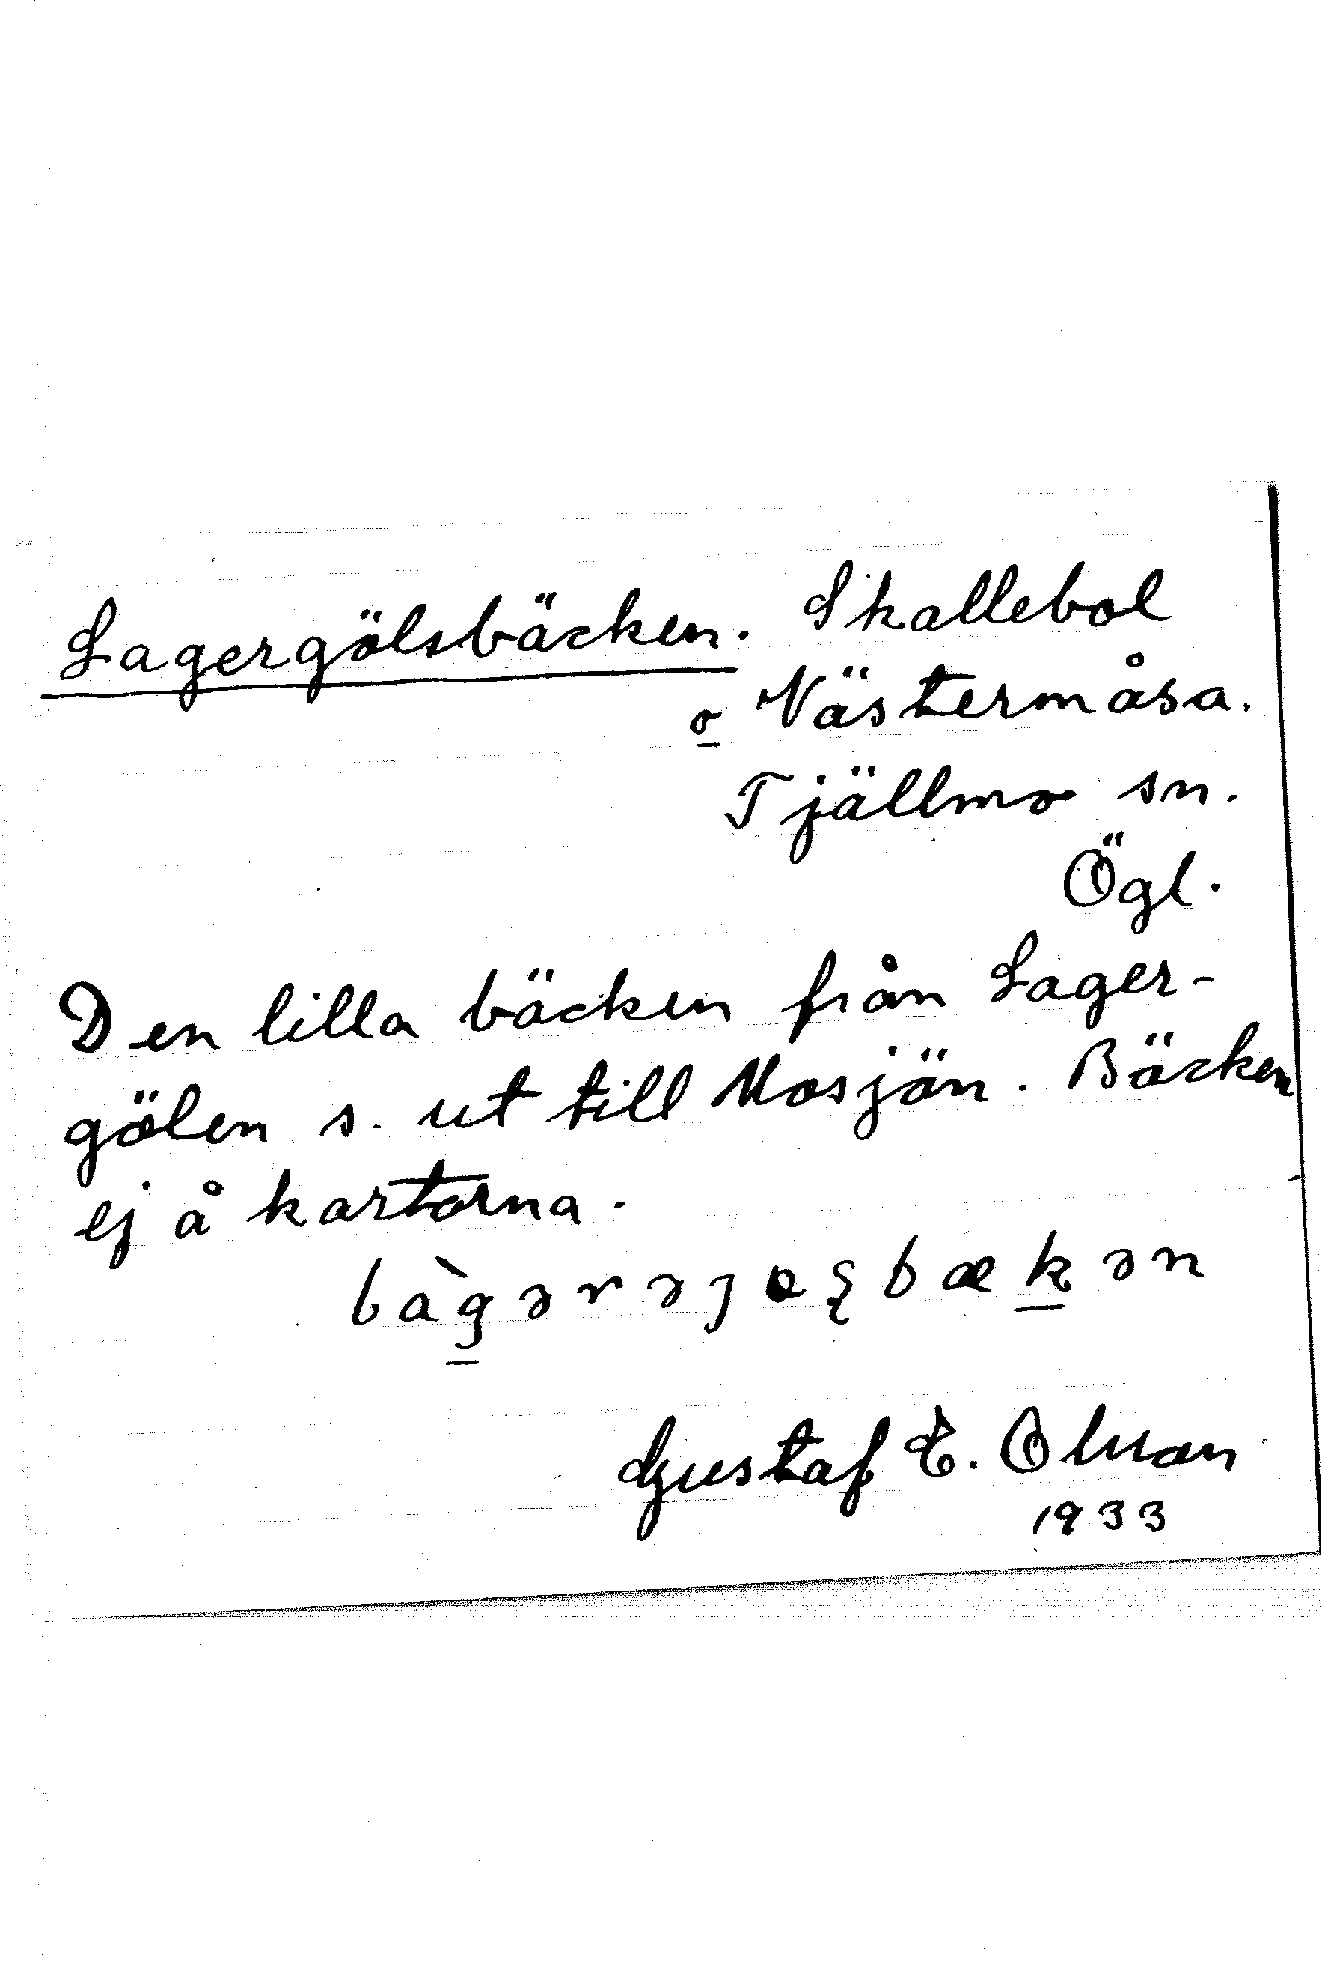 Lagergölsbäcken. Skallebol
o Västermåsa.
Tjällmo sn.
Ögl.
Den lilla bäcken från Lager-
gölen s. ut till Mosjön. Bäcken
ej å kartorna.
Gustaf E. Olson
1933